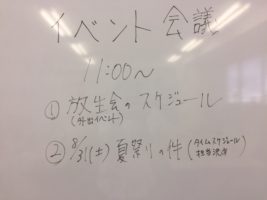 イベント会議
11:00〜
① 放生会のスケジュール
(外出イベント)
② 8/31(土) 夏祭りの件 (タイムスケジュール
担当決め